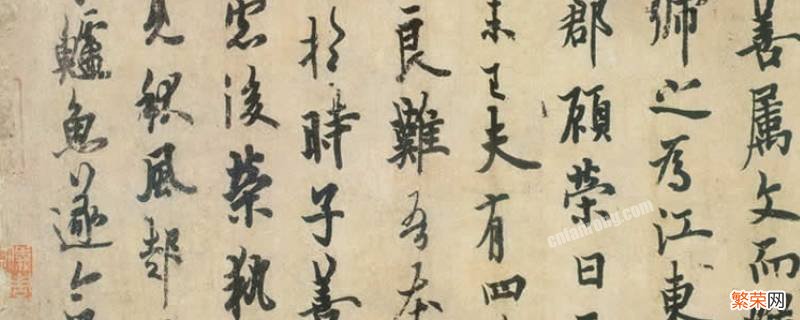 善属文而
號之為江東
郡顧榮曰
未已夫有四
良難吾本
於時子善
慮後榮執
見秋風起
鱸魚遂命
cnfanrong.com
繁荣网